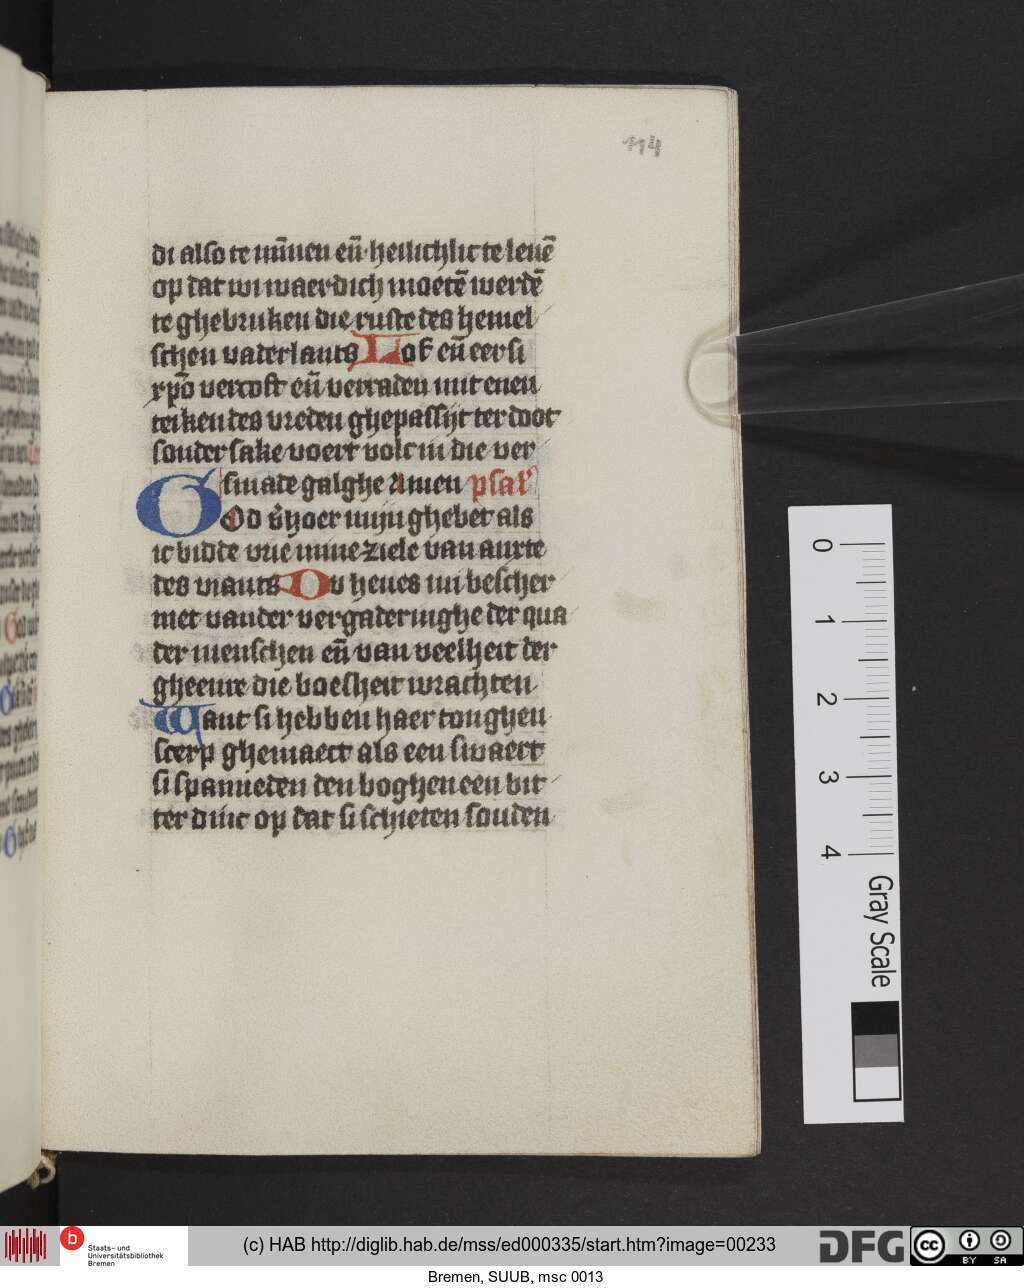 114
di also te mīnen eñ heilichlic te leuē
op dat wi waerdich moetē werdē
te ghebruken die ruste des hemel
schen vaderlants Lof eñ eer si
xp̄o vercoft eñ verraden mit enen
teiken des vreden ghepassijt ter doot
sonder sake voert volc in die ver
smade galghe Amen psal
God v̄hoer mijn ghebet als
ic bidde vrie mine ziele van anxte
des viants Du heues mi bescher
met vander vergaderinghe der qua
der menschen eñ van veelheit der
gheenre die boesheit wrachten
Want si hebben haer tonghen
scerp ghemaect als een swaert
si spanneden den boghen een bit
ter dinc op dat si schieten souden
0
1
2
3
4
Gray Scale
b
Staats- und
Universitätsbibliothek
Bremen
(c) HAB http://diglib.hab.de/mss/ed000335/start.htm?image=00233
DFG
cc
BY SA
Bremen, SUUB, msc 0013